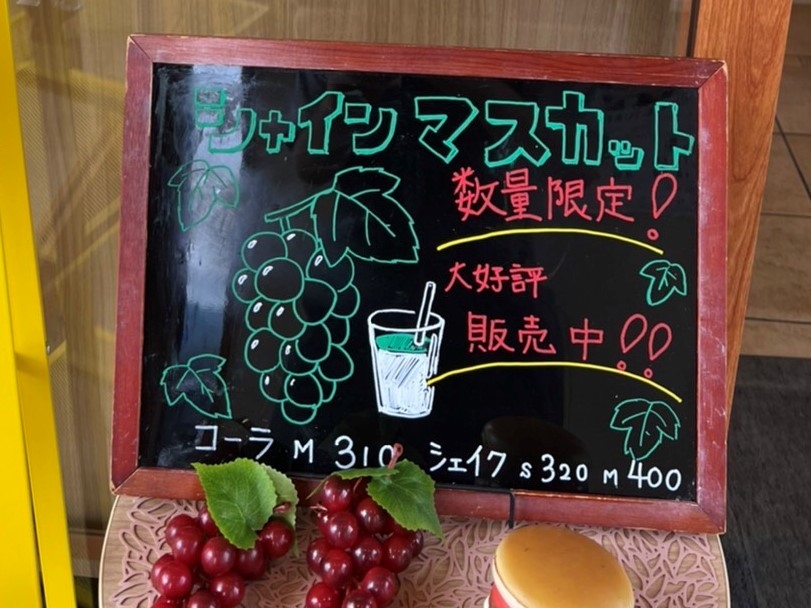 シャインマスカット
数量限定!
大好評
販売中!!
コーラ M 310 シェイク S 320 M 400